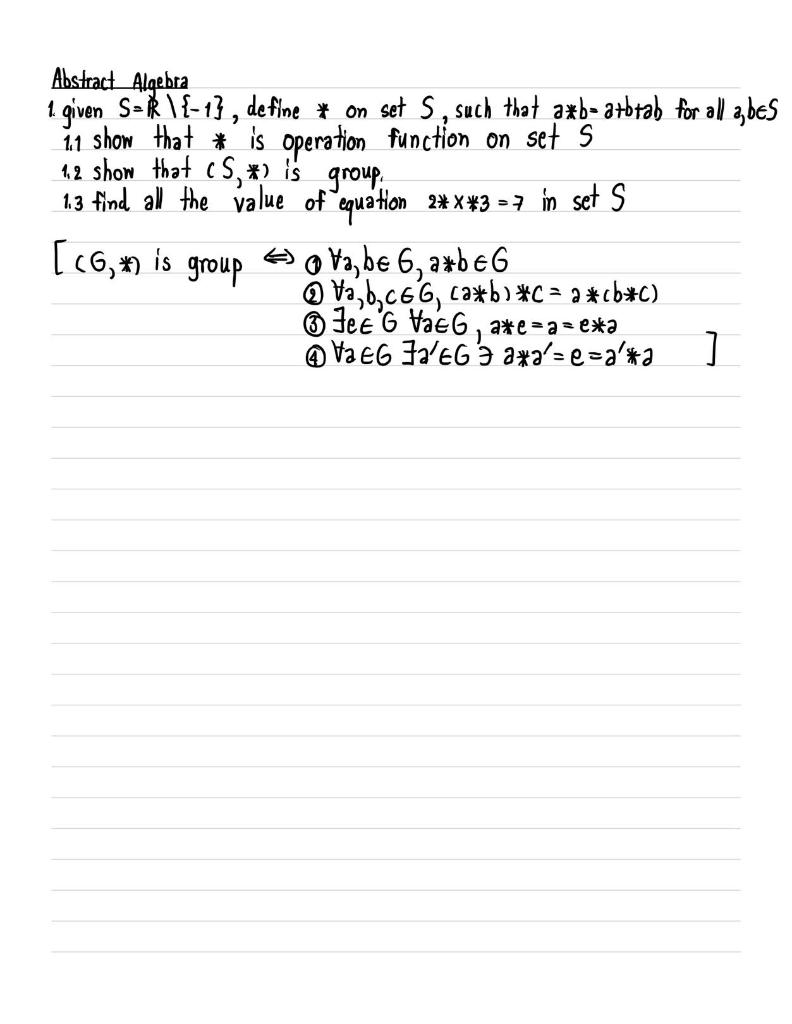 Abstract Algebra
1. given S=ℝ \ {-1}, define * on set S, such that a*b=a+b+ab for all a,b∈S
1.1 show that * is operation function on set S
1.2 show that (S,*) is group.
1.3 find all the value of equation 2*x*3=7 in set S
[(G,*) is group ⇔ ① ∀a,b∈G, a*b∈G
② ∀a,b,c∈G, (a*b)*c = a*(b*c)
③ ∃e∈G ∀a∈G, a*e=a=e*a
④ ∀a∈G ∃a′∈G ∋ a*a′=e=a′*a ]